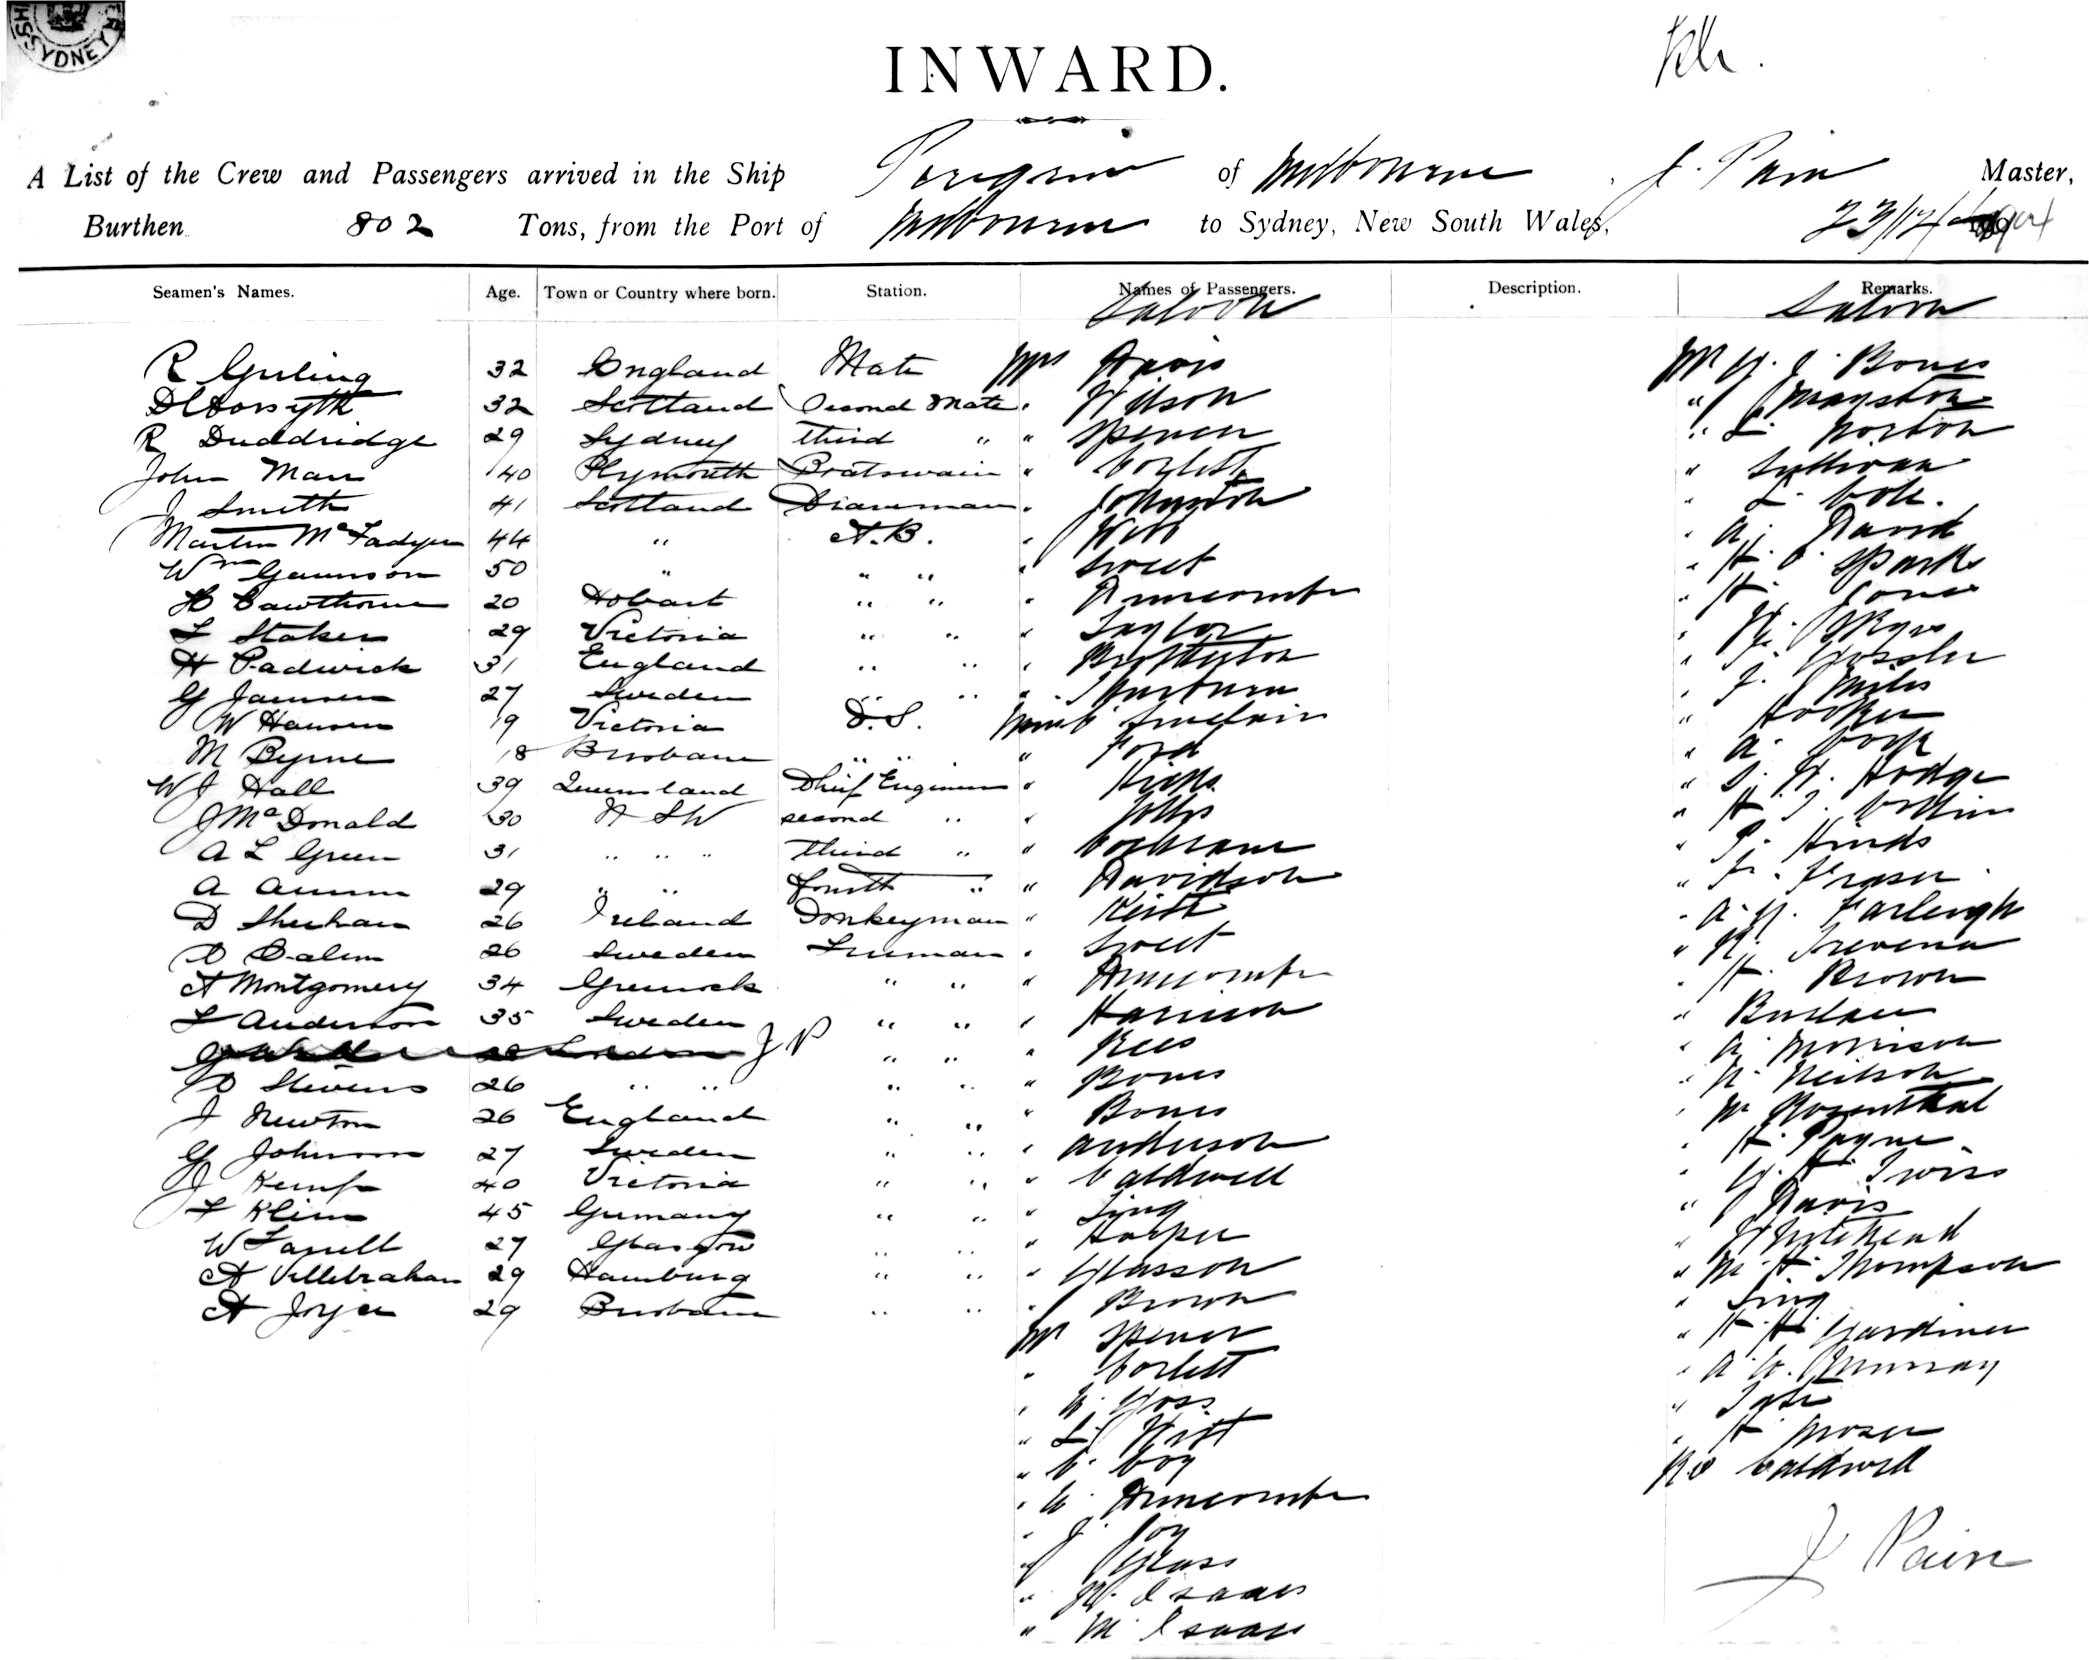 SYDNEY
INWARD.
A List of the Crew and Passengers arrived in the Ship Peregrine of Melbourne, J. Pain Master,
Burthen 802 Tons, from the Port of Melbourne to Sydney, New South Wales, 23/12/
Seamen's Names. Age. Town or Country where born. Station. Names of Passengers. Description. Remarks.
Saloon Saloon
R 32 England Mate Mrs Davis Mr G. J. Bones
D Forsyth 32 Scotland Second Mate " Wilson "
R Duddridge 29 Sydney third " " Spencer " L. Norton
John Marr 40 Plymouth Boatswain " Corlett " Sullivan
J Smith 41 Scotland " Johnston " L. Cole.
Martin McFadyen 44 " A.B. " Witt " A. David
Wm 50 " " " " Sweet " H. Sparks
H Cawthorne 20 Hobart " " " Duncombe " H. Jones
L Staker 29 Victoria " " " Taylor " W.
H Padwick 31 England " " " Brotherton "
G Jansen 27 Sweden " " " " F. Miles
W Hansen 19 Victoria O.S. Miss Sinclair " Hooker
M Byrne 18 Brisbane " " " Ford " A. Cook
W J Hall 39 Queensland Chief Engineer " Hicks " S. W. Hodge
J McDonald 30 N S W second " " " H. J. Collins
A L Green 31 " " " third " " Cochrane " P. Hinds
A 29 " " fourth " " Davidson " F. Fraser
D Sheehan 26 Ireland Donkeyman " Keith " A. G. Farleigh
O 26 Sweden Fireman " Sweet " Trevena
A Montgomery 34 Greenock " " " Duncombe " H. Brown
L Anderson 35 Sweden " " " Harrison "
J P " " " Rees " A. Morrison
O Stevens 26 " " " " " Bones " N. Neilson
J Newton 26 England " " " Bones " M Rosenthal
G Johnson 27 Sweden " " " Anderson " H. Payne
J Kemp 40 Victoria " " " Caldwell " G. H. Twiss
F Klein 45 Germany " " " Ling " Davis
W Farrell 27 Glasgow " " " Harper " Whitehead
A 29 Hamburg " " " Glasson " M. H. Thompson
A Joyce 29 Brisbane " " " Brown " Ling
Mr Spencer " H. H. Gardiner
" Corlett " A. W. Murray
" Goss " Tate
" L. Witt " H Moser
" C. Coy Rev Caldwell
" Duncombe
" J. Joy J Pain
" Glass
" W. Isaacs
" M. Isaacs